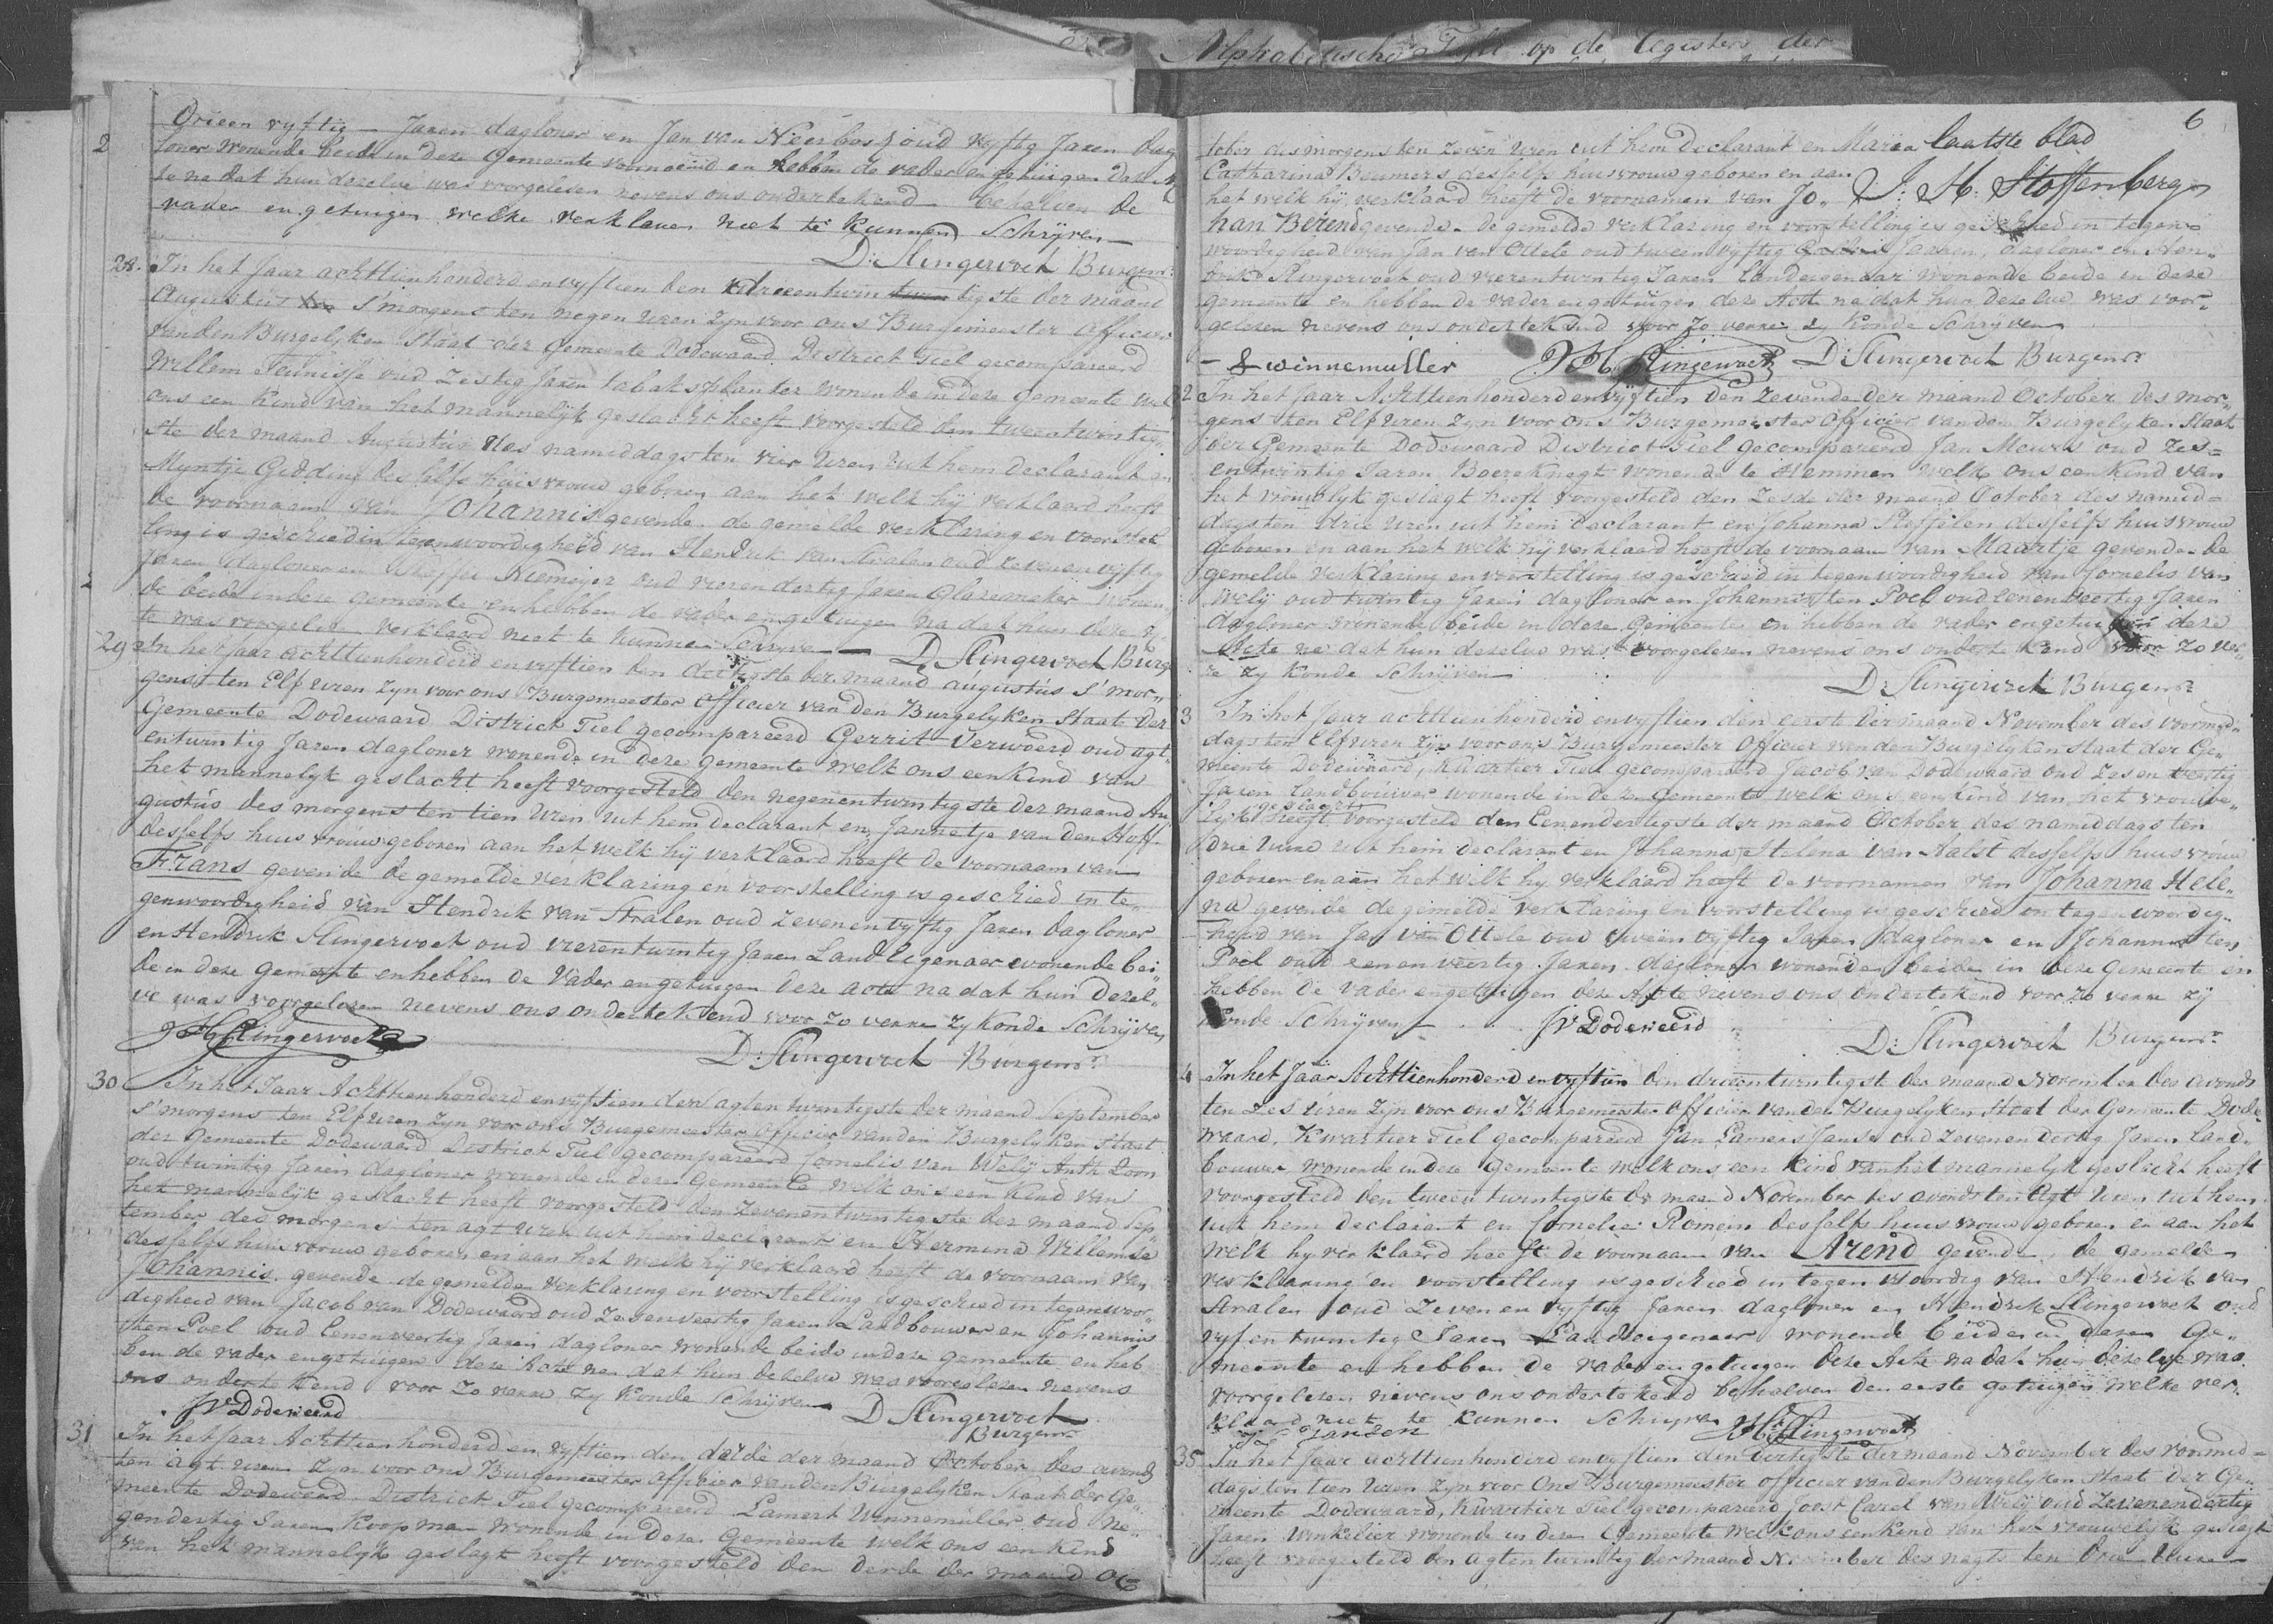 Alphabetische Tafel op de Registers der
drieen vyftig Jaren dagloner en Jan van Neerbosz oud vyftig Jaren dag
loner Wonende beide in deze Gemeente en hebben de vader en getuigen deze
te na dat hun dezelve was voorgelesen nevens ons ondertekend behalven de
vader en getuigen welke verklaren niet te kunnen Schryven
D: Slingervoet Burgemr
28. In het Jaar achttienhonderd en vyftien den drieentwintigste der maand
Augustus s'morgens ten negen uren zyn voor ons Burgemeester officier
van den Burgelyken Staat der Gemeente Dodewaard District Tiel gecompareerd
Willem Teunisse oud Zestig Jaren tabaksplanter wonende in deze gemeente welk
ons een Kind van het mannelyk geslacht heeft voorgesteld den tweentwintig
ste der maand Augustus des namiddags ten vier Uren uit hem declarant en
Myntje Gedding desselfs huisvrouw geboren aan het welk hij verklaard heeft
de voornaam van Johannis gevende de gemelde verklaring en voorstel
ling is geschied in tegenwoordigheid van Hendrik van Stralen oud zevenenvyftig
Jaren dagloner en Niemeijer oud vierendertig Jaren Glazemaker wonen
de beide in deze gemeente en hebben de vader en getuigen na dat hun deze
te was voorgelesen verklaard niet te kunnen Schryven D Slingervoet Burg
29 In het Jaar achttienhonderd en vyftien den dertigste der maand augustus s'mor„
gens ten Elf uren zyn voor ons Burgemeester officier van den Burgelyken Staat der
Gemeente Dodewaard District Tiel gecompareerd Gerrit Verwoerd oud agt„
entwintig Jaren dagloner wonende in deze gemeente welk ons een kind van
het mannelyk geslacht heeft voorgesteld den negenentwintigste der maand Au
gustus des morgens ten tien uren uit hem declarant en Jannetje van den Hoff
desselfs huisvrouw geboren aan het welk hij verklaard heeft de voornaam van
Frans gevende de gemelde verklaring en voorstelling is geschied in te„
genwoordigheid van Hendrik van Stralen oud zevenenvyftig Jaren dagloner
en Hendrik Slingervoet oud vierentwintig Jaren Landeigenaer wonende bei„
de in deze Gemeente en hebben de Vader en getuigen deze acte na dat hun dezel„
ve was voorgelesen nevens ons ondertekend voor zo verre zy konde Schryven
H Slingervoet
D: Slingervoet Burgemr
30 In het Jaar Achttienhonderd en vyftien den agtentwintigste der maand September
s'morgens ten Elf uren zyn voor ons Burgemeester officier van den Burgelyken Staat
der Gemeente Dodewaard District Tiel gecompareerd Cornelis van Welij Anth Zoon
oud twintig Jaren dagloner wonende in deze Gemeente welk ons een kind van
het mannelijk geslacht heeft voorgesteld den Zevenentwintigste der maand Sep„
tember des morgens ten agt uren uit hem declarant en Hermina Willemse
desselfs huisvrouw geboren en aan het welk hij verklaard heeft de voornaam van
Johannis gevende de gemelde verklaring en voorstelling is geschied in tegenwoor„
digheid van Jacob van Dodewaard oud zesenveertig Jaren Landbouwer en Johannis
ten Poel oud Eenenveertig Jaren dagloner wonende beide in deze gemeente en heb
ben de vader en getuigen deze Acte na dat hun dezelve was voorgelesen nevens
ons ondertekend voor zo verre zy konde schryven
JV Dodeweerd
D Slingervoet
Burgemr
31 In het Jaar Achttienhonderd en vyftien den derde der maand October des avonds
ten agt uren zyn voor ons Burgemeester officier van den Burgelyken Staat der Ge„
meente Dodewaard District Tiel gecompareerd Lamert Winnemuller oud Ne„
gendertig Jaren Koopman wonende in deze Gemeente welk ons een kind
van het mannelijk geslagt heeft voorgesteld den derde der maand Oc
6
tober des morgens ten zeven uren uit hem Declarant en Maria laatste blad
Catharina Beumers desselfs huisvrouw geboren en aan
het welk hij verklaard heeft de voornamen van Jo„ J: H: Stoffenberg
han Berend gevende de gemelde verklaring en voorstelling is geschied in tegen
woordigheid van Jan van Ottele oud tweenvyftig Jaaren, dagloner en Hen„
drik Slingervoet oud vierentwintig Jaren Landeigenaar wonende beide in deze
gemeente en hebben de vader en getuigen deze Acte na dat hun dezelve was voor„
gelesen nevens ons ondertekend voor zo verre zy konde Schryven
L winnemuller H Slingervoet D: Slingervoet Burgemr
2 In het Jaar Achttienhonderd en vyftien den Zevende der maand October des mor„
gens ten Elf uren zyn voor ons Burgemeester Officier van den Burgelyken Staat
der Gemeente Dodewaard District Tiel gecompareerd Jan Meurs oud zes=
entwintig Jaren Boereknegt wonende te Hemmen welk ons een kind van
het vrouwlyk geslagt heeft voorgesteld den Zesde der maand October des namid=
dags ten drie uren uit hem declarant en Johanna Steffelen desselfs huisvrouw
geboren en aan het welk hij verklaard heeft de voornaam van Maartje gevende de
gemelde verklaring en voorstelling is geschied in tegenwoordigheid van Cornelis van
Welij oud twintig Jaren dagloner en Johannis ten Poel oud eenenveertig Jaren
dagloner wonende beide in deze Gemeente en hebben de vader en getuigen deze
Acte na dat hun dezelve was voorgelesen nevens ons ondertekend voor zo ver„
re zy konde Schryven
D: Slingervoet Burgemr
3 In het Jaar achttienhonderd en vyftien den eerste der maand November des voormid„
dags ten Elf uren zyn voor ons Burgemeester Officier van den Burgelyken Staat der Ge„
meente Dodewaard, Kwartier Tiel gecompareerd Jacob van Dodewaard oud zesenveertig
Jaren Landbouwer wonende in deze Gemeente welk ons een kind van het vrouwe„
lyk geslacht heeft voorgesteld den Eenendertigste der maand October des namiddags ten
drie uure uit hem declarant en Johanna Helena van Aalst desselfs huisvrouw
geboren en aan het welk hy verklaard heeft de voornamen van Johanna Hele„
na gevende de gemelde verklaring en voorstelling is geschied in tegenwoordig„
heid van Jan van Ottele oud tweenvyftig Jaren dagloner en Johannis ten
Poel oud eenenveertig Jaren dagloner wonende beide in deze Gemeente en
hebben de Vader en getuigen deze Acte nevens ons ondertekend voor zo verre zij
konde Schryven JV Dodeweerd
D: Slingervoet Burgemr
4 In het Jaar Achttienhonderd en vyftien den drieentwintigste der maand November des avonds
ten zes uren zyn voor ons Burgemeester officier van den Burgelyken Staat der Gemeente Dode
waard, Kwartier Tiel gecompareerd Jan Lamers Janse oud zevenendertig Jaren land„
bouwer wonende in deze Gemeente welk ons een kind van het mannelyk geslacht heeft
voorgesteld den tweentwintigste der maand November des avonds ten Agt uren uit hem
uit hem declarant en Cornelia Romein desselfs huisvrouw geboren en aan het
welk hy verklaard heeft de voornaam van Arend gevende de gemelde
verklaring en voorstelling is geschied in tegenwoordig van Hendrik van
Stralen oud zevenenvyftig Jaren dagloner en Hendrik Slingervoet oud
vyfentwintig Jaren Landeigenaer wonende beide in deze Ge„
meente en hebben de vader en getuigen deze Acte na dat hun dezelve was
voorgelesen nevens ons ondertekend behalven den eerste getuigen welke ver„
klaard niet te kunnen Schryven H Slingervoet
Jansen
35 In het Jaar achttienhonderd en vyftien den dertigste der maand November des voormid=
dags ten tien uren zyn voor Ons Burgemeester officier van den Burgelyken Staat der Ge„
meente Dodewaard, Kwartier Tiel gecompareerd Joost Carel van Welij oud Zevenendertig
Jaren Winkelier wonende in deze Gemeente welk ons een kind van het vrouwelyk geslagt
heeft voorgesteld den agtentwintig der maand November des nagts ten drie uure